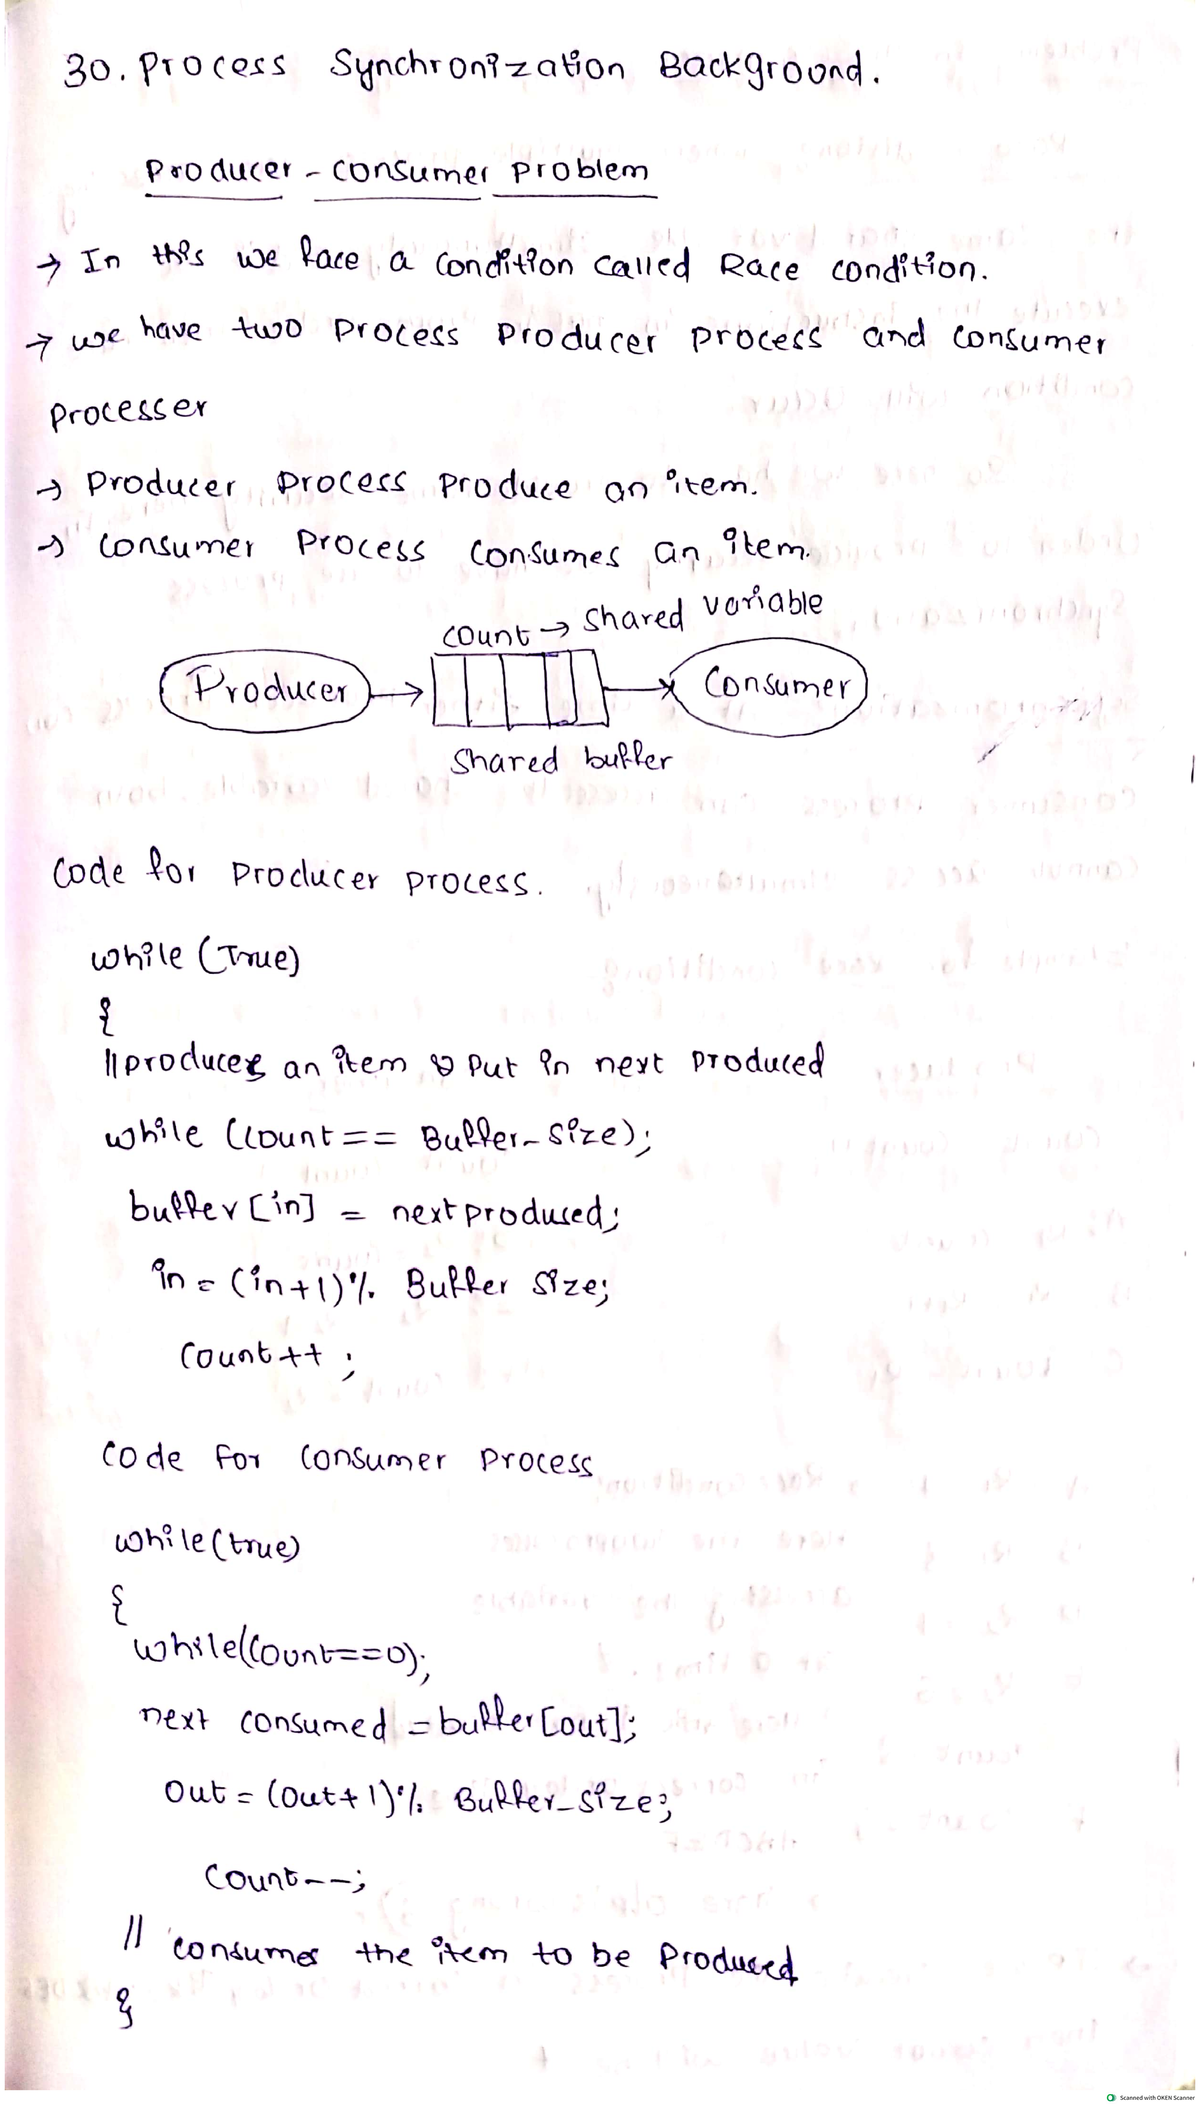 30. Process Synchronization Background.
Producer - consumer problem
→ In this we face a condition called Race condition.
→ we have two process producer process and consumer
processer
→ producer process produce an item.
→ consumer process consumes an item.
count → shared variable
Producer → Consumer
shared buffer
code for producer process.
while (True)
{
// produces an item & put in next produced
while (count == Buffer_size);
buffer [in] = next produced;
in = (in+1) % Buffer size;
count ++ ;
code for consumer process
while (true)
{
while(count==0);
next consumed = buffer [out];
out = (out+1) % Buffer_size;
count--;
// consumes the item to be produced
}
Scanned with OKEN Scanner